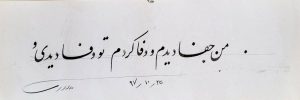 من جفا دیدم و وفا کردم تو وفا دیدی و
۹۷٫۱۰٫۲۵